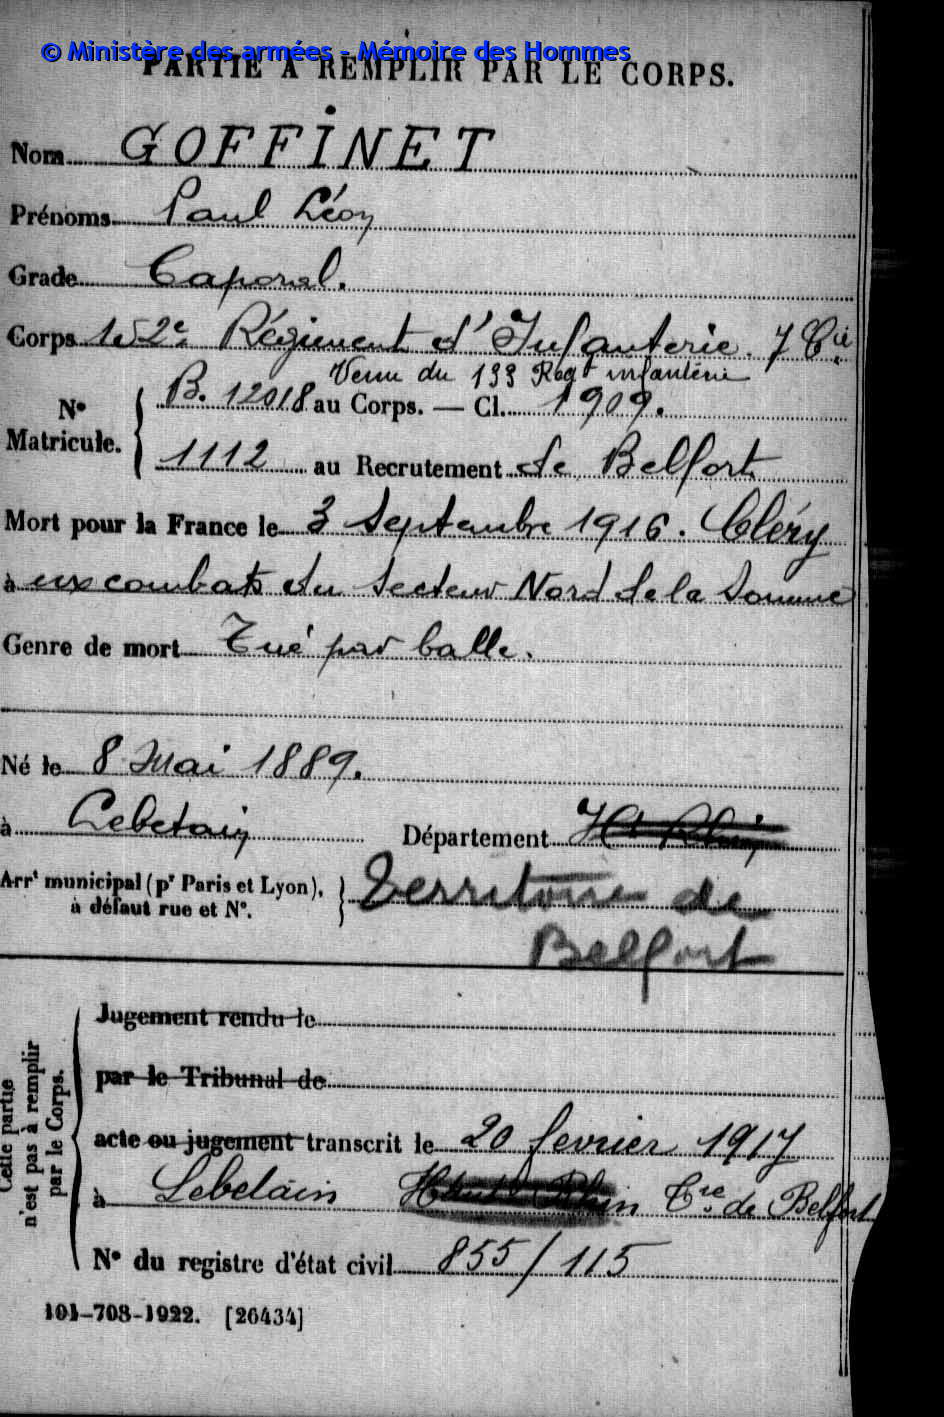 © Ministère des armées - Mémoire des Hommes
PARTIE À REMPLIR PAR LE CORPS.
Nom GOFFINET
Prénoms Paul Léon
Grade Caporal.
Corps 152e Régiment d'Infanterie. 7 Cie
Venu du 133 Regt infanterie
N° Matricule. B. 12018 au Corps. — Cl. 1909.
1112 au Recrutement de Belfort
Mort pour la France le 3 Septembre 1916. Cléry
à ux combats du Secteur Nord de la Somme
Genre de mort Tué par balle.
Né le 8 Mai 1889.
à Lebetain Département Ht Rhin
Arrt municipal (pr Paris et Lyon), à défaut rue et N°. Territoire de
Belfort
Cette partie n'est pas à remplir par le Corps.
Jugement rendu le
par le Tribunal de
acte ou jugement transcrit le 20 fevrier 1917
à Lebetain Haut Rhin Tre de Belfort
N° du registre d'état civil 855/115
101-708-1922. [26434]